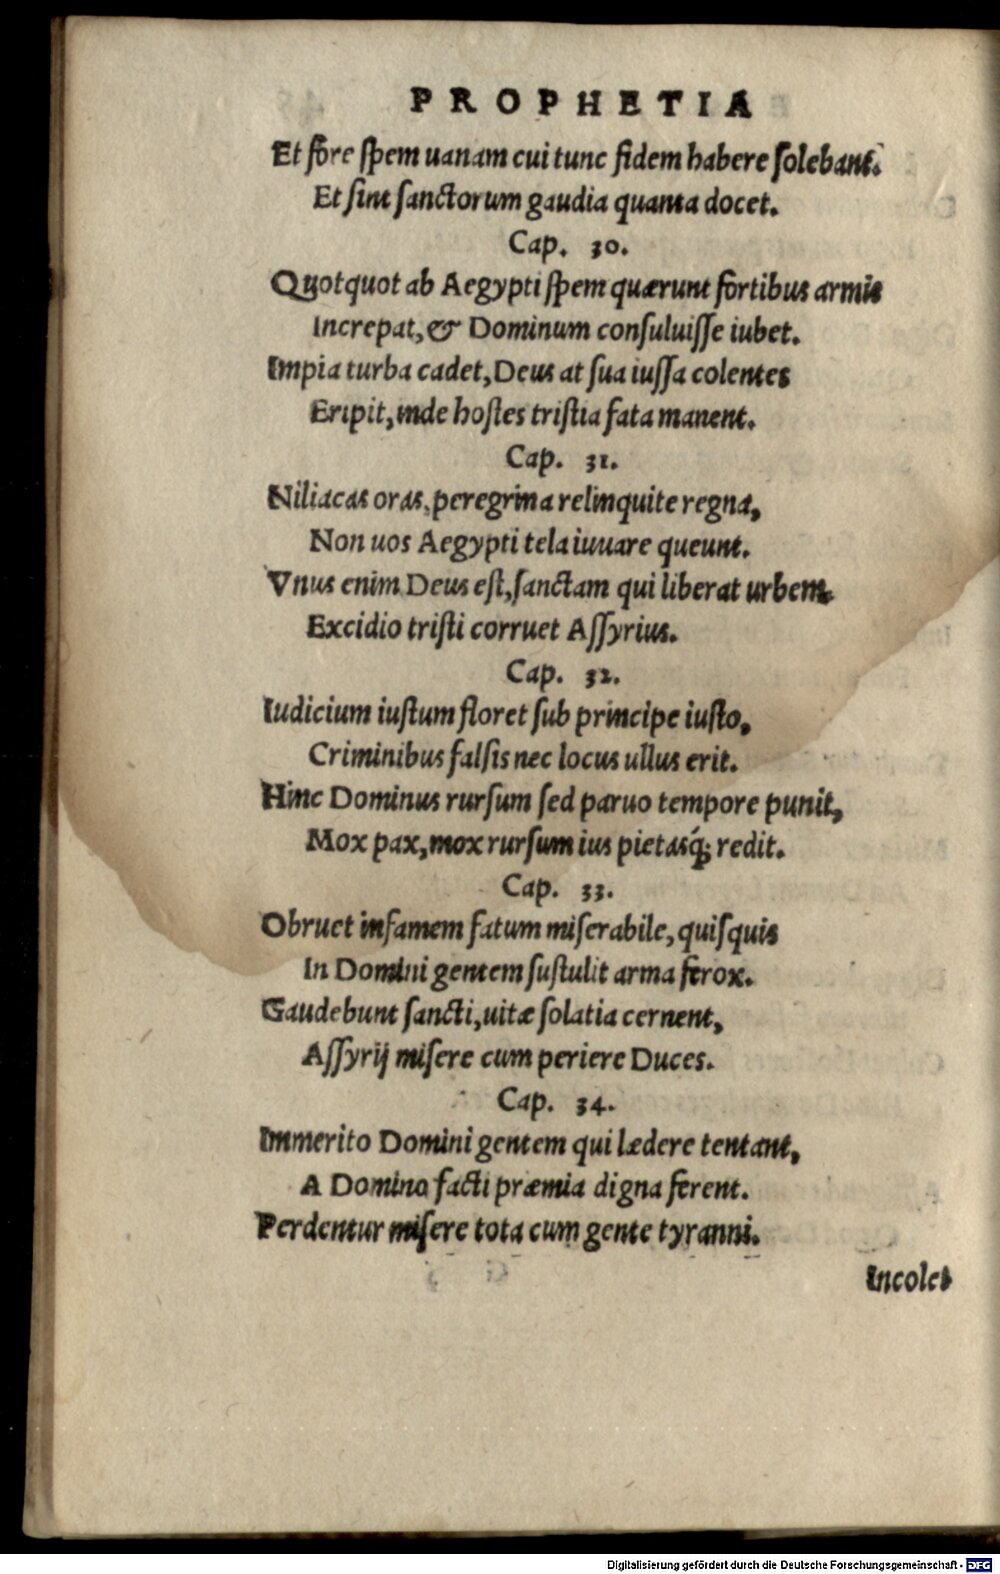 PROPHETIA
Et fore ſpem uanam cui tunc fidem habere ſolebant.
Et ſint ſanctorum gaudia quanta docet.
Cap. 30.
Quotquot ab Aegypti ſpem quærunt fortibus armis
Increpat, & Dominum conſuluiſſe iubet.
Impia turba cadet, Deus at ſua iuſſa colentes
Eripit, inde hoſtes triſtia fata manent.
Cap. 31.
Niliacas oras, peregrina relinquite regna,
Non uos Aegypti tela iuuare queunt.
Vnus enim Deus eſt, ſanctam qui liberat urbem.
Excidio triſti corruet Aſſyrius.
Cap. 32.
Iudicium iuſtum floret ſub principe iuſto,
Criminibus falſis nec locus ullus erit.
Hinc Dominus rurſum ſed paruo tempore punit,
Mox pax, mox rurſum ius pietasq́; redit.
Cap. 33.
Obruet infamem fatum miſerabile, quiſquis
In Domini gentem ſuſtulit arma ferox.
Gaudebunt ſancti, uitæ ſolatia cernent,
Aſſyrij miſere cum periere Duces.
Cap. 34.
Immerito Domini gentem qui lædere tentant,
A Domino facti præmia digna ferent.
Perdentur miſere tota cum gente tyranni.
Incolet
Digitalisierung gefördert durch die Deutsche Forschungsgemeinschaft - DFG